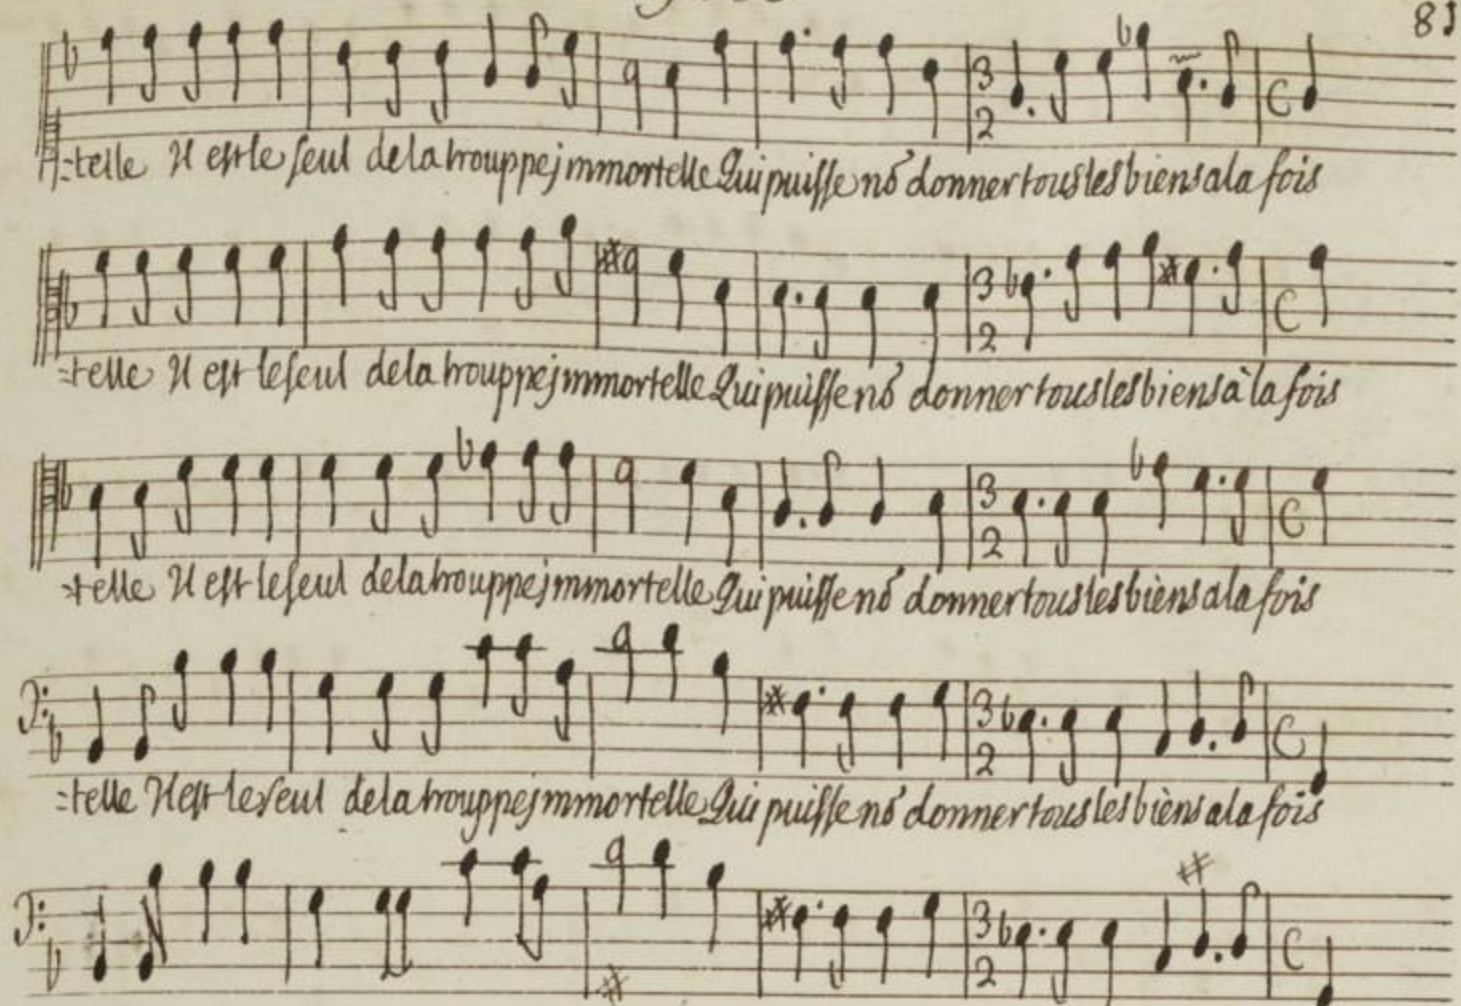 81
=telle Il est le seul de la trouppe jmmortelle Qui puisse nõ donner tous les biens a la fois
=telle Il est le seul de la trouppe jmmortelle Qui puisse nõ donner tous les biens à la fois
=telle Il est le seul de la trouppe jmmortelle Qui puisse nõ donner tous les biens a la fois
=telle Il est le seul de la trouppe jmmortelle Qui puisse nõ donner tous les biens a la fois